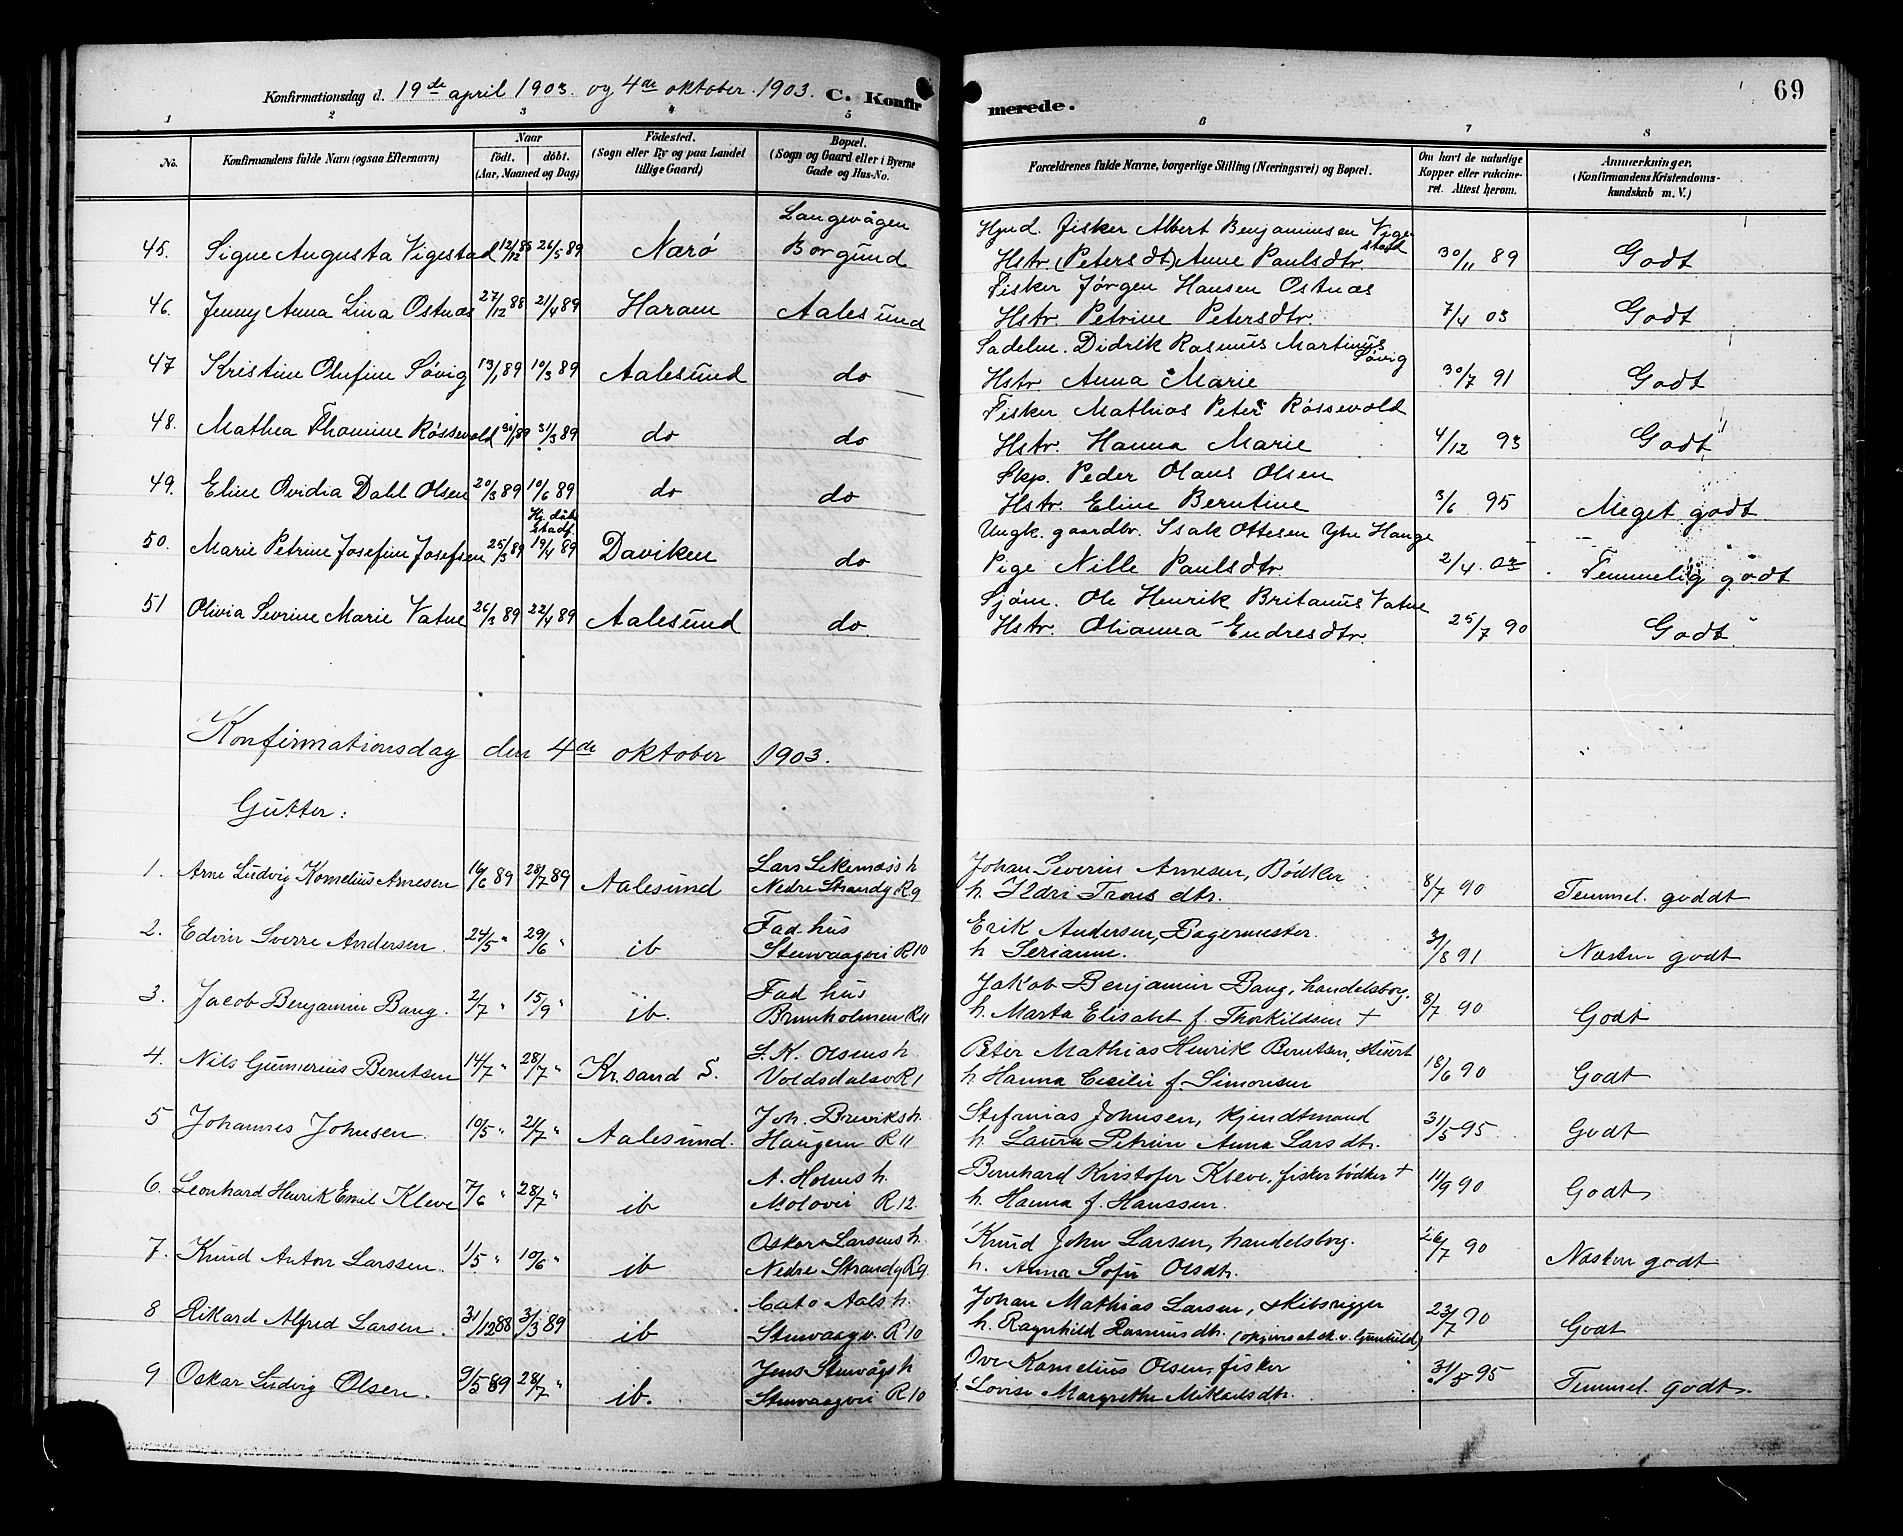 Konfirmationsdag d. 19de april 1903 og 4de oktober 1903. C. Konfirmerede. 69
1 2 3 4 5 6 7 8
No. Konfirmandens fulde Navn (ogsaa Efternavn) Naar født. døbt. (Aar, Maaned og Dag) Fødested. (Sogn eller By og paa Landet tillige Gaard) Bopæl. (Sogn og Gaard eller i Byerne Gade og Hus-No. Forældrenes fulde Navne, borgerlige Stilling (Næringsvei) og Bopæl. Om havt de naturlige Kopper eller vakcineret. Attest herom. Anmærkninger. (Konfirmandens Kristendomskundskab m. V.)
Langevågen Hjnd. Fisker Albert Benjaminsen Vigestad
45. Signe Augusta Vigestad 12/12 88 26/5 89 Nærø Borgund Hstr. (Petersdt) Anne Paulsdtr. 30/11 89 Godt
Fisker Jørgen Hansen Ostnæs
46. Jenny Anna Lina Ostnæs 27/12 88 21/4 89 Haram Aalesund Hstr. Petrine Petersdtr. 7/4 03 Godt
Sadelm. Didrik Rasmus Martinus Søvig
47 Kristine Olufine Søvig 13/1 89 10/3 89 Aalesund do Hstr. Anna Marie 30/7 91 Godt
Fisker Mathias Peter Røssevold
48. Mathea Thomine Røssevold 30/1 89 31/3 89 do do Hstr. Hanna Marie 4/12 93 Godt
Skp. Peder Olaus Olsen
49. Eline Ovidia Dahl Olsen 20/3 89 10/6 89 do do Hstr. Eline Berntine 3/6 95 Meget godt
Hj. døbt stadf. Ungk. gaardbr. Isak Ottesen Ytre Hauge
50. Marie Petrine Josefine Josefsen 25/3 89 19/4 89 Daviken do Pige Nille Paulsdtr. 2/4 03 Temmelig godt
Sjøm. Ole Henrik Britanus Vatne
51 Olivia Sevrine Marie Vatne 26/3 89 22/4 89 Aalesund do. Hstr. Olianna Endresdtr. 25/7 90 Godt
Konfirmationsdag den 4de oktober 1903.
Gutter:
Nedre Strandg R9 Johan Severin Arnesen, Bødker
1. Arne Ludvig Kornelius Arnesen 16/6 89 28/7 89 Aalesund h. Ildri Trons dtr. 8/7 90 Temmel. goddt
Fad. hus Erik Andersen, Bagermester.
2. Edvin Sverre Andersen. 24/5 " 29/6 " ib Stenvaagvei R10 h Serianne. 31/8 91 Næsten godt
Fad hus Jakob Benjamin Bang, handelsborg.
3. Jacob Benjamin Bang. 2/7 " 15/9 " ib. Brunholmen R11 h. Marta Elisabet f. Thorkildsen + 8/7 90 Godt
S. K. Olsens h. Peter Mathias Henrik Berntsen, stuert
4. Nils Gunnerius Berntsen 14/7 " 28/7 " Kr.sand S. Voldsdalsv R1 h. Hanna Cecilie f. Simonsen 18/6 90 Godt
Joh. Breviks h. Stefanias Johnsen, kjendtmand
5 Johannes Johnsen. 10/5 " 21/7 " Aalesund. Haugen R11 h. Laura Petrine Anna Larsdtr. 31/5 95 Godt
A. Holms h. Bernhard Kristofer Kleve, fisker bødker +
6. Leonhard Henrik Emil Kleve 7/6 " 28/7 " ib Molovei R12. h. Hanna f. Hanssen. 11/9 90 Godt
Oskar Larsens h. Knud John Larsen, handelsborg.
7. Knud Anton Larssen. 1/5 " 10/6 " ib Nedre Strandg R9. h. Anna Sofie Olsdtr. 26/7 90 Næsten godt
Cato Aals h. Johan Mathias Larsen, skibsrigger
8 Rikard Alfred Larsen. 31/12 88 31/3 89 ib Stenvaagv. R10 h. Ragnhild Rasmusdtr. 23/7 90 Godt
Jens Stenvågs h Ove Kornelius Olsen, fisker
9 Oskar Ludvig Olsen. 9/5 89 28/7 " ib. Stenvaagvei R10 h. Lovise Margrethe Mikaelsdtr. 31/5 95 Temmel. godt.